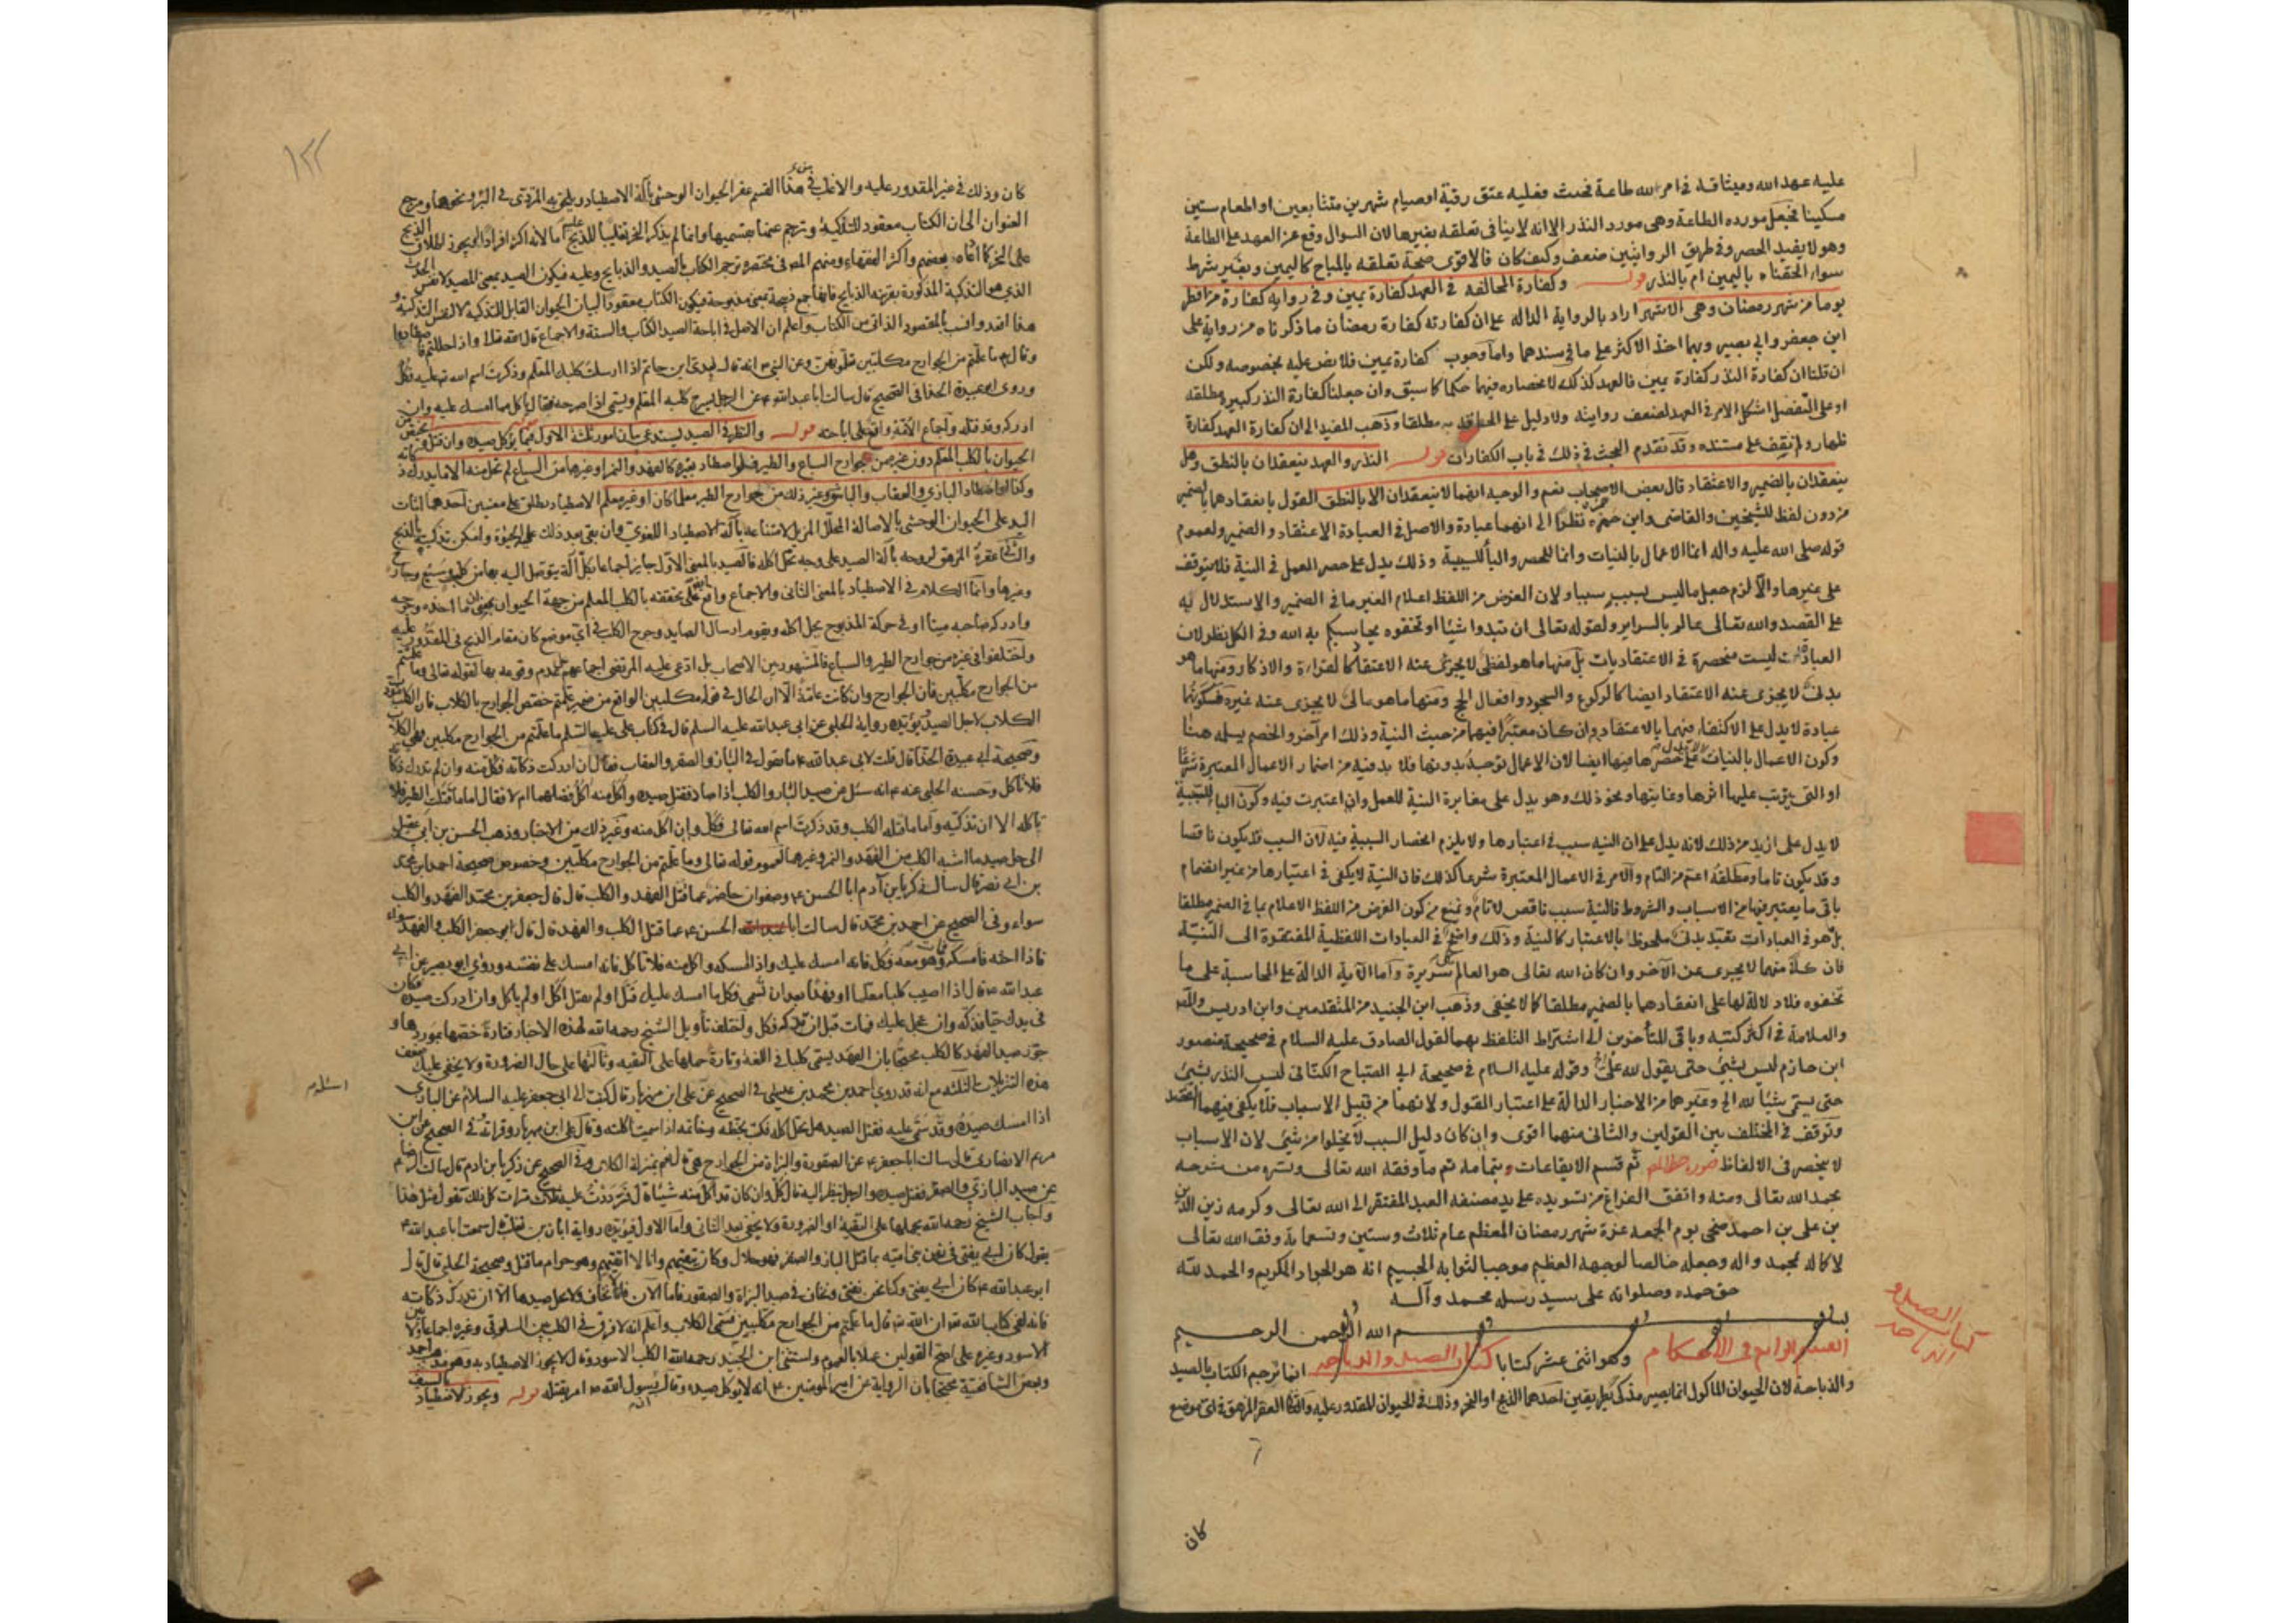 عليه عهد الله وميثاقه في امر لله طاعة فحنث فعليه عتق رقبة او صيام شهرين متتابعين او اطعام ستين
مسكينا فجعل مورده الطاعة وهي مورد النذر الا انه لا ينافي تعلقه بغيرها لان السوال وقع عن العهد على الطاعة
وهو لا يفيد الحصر وفي طريق الروايتين ضعف وكيف كان فالاقوى صحة تعلقه بالمباح كاليمين وبغير شرط
سواء الحقناه باليمين ام بالنذر قوله وكفارة المخالفة في العهد كفارة يمين وفي رواية كفارة من افطر
يوما من شهر رمضان وهي الاشهر اراد بالرواية الدالة على ان كفارته كفارة رمضان ما ذكرناه من رواية علي
ابن جعفر وابي بصير وبهما اخذ الاكثر على ما في سندهما واما وجوب كفارة يمين فلا نص عليه بخصوصه ولكن
ان قلنا ان كفارة النذر كفارة يمين فالعهد كذلك لانحصاره فيهما حكما كما سبق وان جعلنا كفارة النذر كبيرة مطلقه
او على التفصيل اشكل الامر في العهد لضعف روايته ولا دليل على الحاقه به مطلقا وذهب المفيد الى ان كفارة العهد كفارة
ظهار ولم نقف على مستنده وقد تقدم البحث في ذلك في باب الكفارات قوله النذر والعهد ينعقدان بالنطق وهل
ينعقدان بالضمير والاعتقاد قال بعض الاصحاب نعم والوجه انهما لا ينعقدان الا بالنطق القول بانعقادهما بالضمير
من دون لفظ للشيخين والقاضي وابن حمزة نظرا الى انهما عبادة والاصل في العبادة الاعتقاد والضمير ولعموم
قوله صلى الله عليه واله انما الاعمال بالنيات وانما للحصر والبا للسببية وذلك يدل على حصر العمل في النية فلا يتوقف
على غيرها والا لزم جعل ما ليس بسبب سببا ولان الغرض من اللفظ اعلام الغير ما في الضمير والاستدلال به
على القصد والله تعالى عالم بالسراير ولقوله تعالى ان تبدوا شيئا او تخفوه يحاسبكم به الله وفي الكل نظر لان
العبادات ليست منحصرة في الاعتقاديات بل منها ما هو لفظي لا يجزي عنه الاعتقاد كالقراءة والاذكار ومنها ما هو
بدني لا يجزي عنه الاعتقاد ايضا كالركوع والسجود وافعال الحج ومنها ما هو مالي لا يجزي عنه غيره فكونهما
عبادة لا يدل على الاكتفاء فيهما بالاعتقاد وان كان معتبرا فيهما من حيث النية وذلك امر آخر والخصم يسلمه هنا
وكون الاعمال بالنيات لا يدل على حصرها فيها ايضا لان الاعمال توجد بدونها فلا بد فيه من اضمار الاعمال المعتبرة شرعا
او التي يترتب عليها اثرها وغايتها ونحو ذلك وهو يدل على مغايرة النية للعمل وان اعتبرت فيه وكون الباء للسببية
لا يدل على ازيد من ذلك لانه يدل على ان النية سبب في اعتبارها ولا يلزم انحصار السببية فيه لان السبب قد يكون ناقصا
وقد يكون تاما ومطلقه اعم من التام والامر في الاعمال المعتبرة شرعا كذلك فان النية لا يكفي في اعتبارها من غير انضمام
باقي ما يعتبر فيها من الاسباب والشروط فالنية سبب ناقص لا تام ونمنع من كون الغرض من اللفظ الاعلام بما في الضمير مطلقا
بل هو في العبادات تعبد بدني ملحوظ بالاعتبار كالنية وذلك واضح في العبادات اللفظية المفتقرة الى النية
فان كلا منهما لا يجزى عن الآخر وان كان الله تعالى هو العالم بكل سريرة واما الآية الدالة على المحاسبة على ما
تخفوه فلا دلالة لها على انعقادهما بالضمير مطلقا كما لا يخفى وذهب ابن الجنيد من المتقدمين وابن ادريس والمص
والعلامة في اكثر كتبه وباقي المتأخرين الى اشتراط التلفظ بهما لقول الصادق عليه السلام في صحيحة منصور
ابن حازم ليس بشيء حتى يقول لله علي وقوله عليه السلام في صحيحة ابي الصباح الكناني ليس النذر بشيء
حتى يسمي شيئا لله الخ وغيرهما من الاخبار الدالة على اعتبار القول ولانهما من قبيل الاسباب فلا يكفي فيهما القصد
وتوقف في المختلف بين القولين والثاني منهما اقوى وان كان دليل السبب لا يخلوا من شيء لان الاسباب
لا ينحصر في الالفاظ ثم قسم الايقاعات وبتمامه تم ما وفقه الله تعالى ويسره من شرحه
بحمد الله تعالى ومنه واتفق الفراغ من تسويده على يد مصنفه العبد المفتقر الى الله تعالى وكرمه زين الدين
بن علي بن احمد ضحى يوم الجمعه غرة شهر رمضان المعظم عام ثلاث وستين وتسعماية وفق الله تعالى
لاكماله بمحمد واله وجعله خالصا لوجهه العظيم موجبا لثوابه الجسيم انه هو الجواد الكريم والحمد لله
حق حمده وصلواته على سيد رسله محمد وآله
بسم الله الرحمن الرحيم
القسم الرابع في الاحكام وهو اثنى عشر كتابا كتاب الصيد والذباحه انما ترجم الكتاب بالصيد
والذباحة لان الحيوان الماكول انما يصير مذكى بطريقين احدهما الذبح او النحر وذلك في الحيوان المقدور عليه والثاني العقر المزهق في اي موضع
كتاب الصيد و
الذباحه
كان
١٢٢
كان وذلك في غير المقدور عليه والاغلب في هذا القسم عقر الحيوان الوحشي بآلة الاصطياد ويلحق به المتردي في البئر ونحوها ومرجع
العنوان الى ان الكتاب معقود للتذكية وترجم عنها بقسميها وانما لم يذكر النحر تغليبا للذبح عليه اما لانه اكثر افرادا او لجواز اطلاق الذبح
وقال وما علمتم من الجوارح مكلبين تعلمونهن وعن النبي انه قال لعدي ابن حاتم اذا ارسلت كلبك المعلم وذكرت اسم الله تع عليه فكل
وروى ابو عبيدة الحذاء في الصحيح قال سالت ابا عبد الله عن الرجل يسرح كلبه المعلم ويسمي اذا سرحه فقال ياكل مما امسك عليه وان
ادركه وقد قتله واجماع الامة واقع على اباحته قوله والنظر في الصيد يستدعي بيان امور ثلثة الاول فيما يؤكل صيده وان قتل
الحيوان بالكلب المعلم دون غيره من جوارح السباع والطير فلو اصطاد بغيره كالفهد والنمر او غيرهما من السباع لم يحل منه الا ما يدرك ذكاته
وكذا لو اصطاد بالبازي والعقاب والباشق وغير ذلك من جوارح الطير معلما كان او غير معلم الاصطياد يطلق على معنيين احدهما اثبات
اليد على الحيوان الوحشي بالاصالة المحلل المزيل لامتناعه بآلة الاصطياد اللغوي وان بقي بعد ذلك على الحيوة وامكن تذكيته بالذبح
والثاني عقره المزهق لروحه بآلة الصيد على وجه يحل اكله فالصيد بالمعنى الاول جايز اجماعا بكل آلة يتوصل اليه بها من كلب وسبع وجارح
وغيرها وانما الكلام في الاصطياد بالمعنى الثاني والاجماع واقع على تحققه بالكلب المعلم من جهة الحيوان بمعنى ان ما اخذه وجرحه
وادركه صاحبه ميتا او في حركة المذبوح يحل اكله ويقوم ارسال الصايد وجرح الكلب في اي موضع كان مقام الذبح في المقدور عليه
واختلفوا في غيره من جوارح الطير والسباع فالمشهور بين الاصحاب بل ادعى عليه المرتضى اجماعهم عدم وقوعه بها لقوله تعالى وما علمتم
من الجوارح مكلبين فان الجوارح وان كانت عامة الا ان الحال في قوله مكلبين الواقع من ضمير علمتم خصص الجوارح بالكلاب فان المكلب مؤدب
الكلاب لاجل الصيد ويؤيده رواية الحلبي عن ابي عبد الله عليه السلم قال في كتاب علي عليه السلم ما علمتم من الجوارح مكلبين فهي الكلاب
وصحيحة ابي عبيدة الحذاء قال قلت لابي عبد الله ما تقول في البازي والصقر والعقاب فقال ان ادركت ذكاته فكل منه وان لم تدرك ذكاته
فلا تاكل وحسنه الحلبي عنه انه سئل عن صيد البازي والكلب اذا صاد فقتل صيده واكل منه آكل فضلهما ام لا فقال اما ما قتله الطير فلا
تاكله الا ان تذكيه واما ما قتله الكلب وقد ذكرت اسم الله تعالى فكل وان اكل منه وغير ذلك من الاخبار وذهب الحسن بن ابي عقيل
الى حل صيد ما اشبه الكلب من الفهد والنمر وغيرهما لعموم قوله تعالى وما علمتم من الجوارح مكلبين وخصوص صحيحة احمد بن محمد
بن ابي نصر قال سال زكريا بن آدم ابا الحسن وصفوان حاضر عما قتل الفهد والكلب قال قال جعفر بن محمد الفهد والكلب
سواء وفي الصحيح عن احمد بن محمد قال سالت ابا الحسن عما قتل الكلب والفهد قال قال ابو جعفر الكلب والفهد سواء
فاذا اخذه فامسكه فمات وهو معه فكل فانه امسك عليك واذا امسكه واكل منه فلا تاكل فانه امسك على نفسه وروى ابو بصير عن ابي
عبد الله قال اذا اصبت كلبا معلما او فهدا بعد ان تسمي فكل ما امسك عليك قتل او لم يقتل اكل او لم ياكل وان ادركت صيده فكان
في يدك حيا فذكه وان عجل عليك فمات قبل ان تذكيه فكل واختلف تأويل الشيخ رحمه الله لهذه الاخبار فتارة خصها بموردها و
جوز صيد الفهد كالكلب محتجا بان الفهد يسمى كلبا في اللغة وتارة حملها على التقيه وثالثها على حال الضرورة ولا يخفى عليك ضعف
هذه التنزيلات الثلثة مع انه قد روى احمد بن محمد بن عيسى في الصحيح عن علي ابن مهزيار قال كتب الى ابي جعفر عليه السلام عن البازي
اذا امسك صيده وقد سمى عليه فقتل الصيد هل يحل اكله فكتب بخطه وخاتمه اذا سميت اكلته وقال علي ابن مهزيار وقرأته في الصحيح عن ابن
مريم الانصاري قال سالت ابا جعفر عن الصقورة والبزاة من الجوارح هي قال نعم بمنزلة الكلاب وفي الصحيح عن زكريا بن ادم قال سالت الرضا
عن صيد البازي والصقر فقتل صيده والرجل ينظر اليه قال كل وان كان قد اكل منه شيئا قال فرددت عليه ثلاث مرات كل ذلك يقول مثل هذا
واجاب الشيخ رحمه الله بحملها على التقية او الضرورة ولا يخفى بعد الثاني واما الاول فيؤيده رواية ابان بن تغلب قال سمعت ابا عبد الله
يقول كان ابي يفتي في زمن بني امية بما قتل الباز والصقر فهو حلال وكان يتقيهم وانا لا اتقيهم وهو حرام ما قتل وصحيحة الحلبي قال قال
ابو عبد الله كان ابي يفتي وكنا نحن نفتي ونخاف في صيد البزاة والصقور فاما الآن فانا لا نخاف ولا يحل صيدها الا ان تدرك ذكاته
فانه لفي كتاب الله ان الله قال ما علمتم من الجوارح مكلبين فسمى الكلاب واعلم انه لا فرق في الكلب بين السلوقي وغيره اجماعا ولا بين
الاسود وغيره على اصح القولين عملا بالعموم واستثنى ابن الجنيد رحمه الله الكلب الاسود وقال لا يجوز الاصطياد به وهو مذهب احمد
وبعض الشافعية محتجا بان الرواية عن امير المؤمنين انه لا يؤكل صيده وقال ان رسول الله امر بقتله قوله ويجوز الاصطياد بالسيف